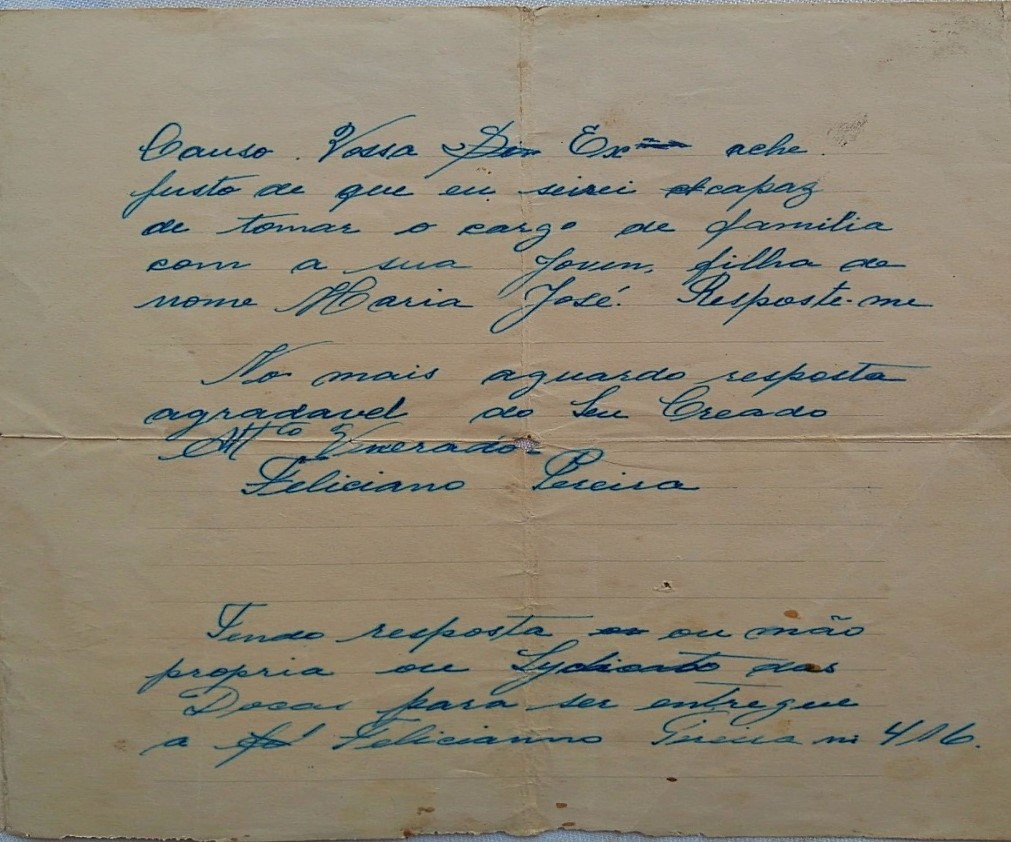 Causo. Vossa Ex ache
justo de que eu seirei capaz
de tomar o cargo de familia
com a sua Joven, filha de
nome Maria José. Resposte-me
No mais aguardo resposta
agradavel do Seu Creado
Mto Venerador
Feliciano Pereira
Tendo resposta ou mão
propria ou das
Docas para ser entregue
a Felicianno Pereira nº 416.